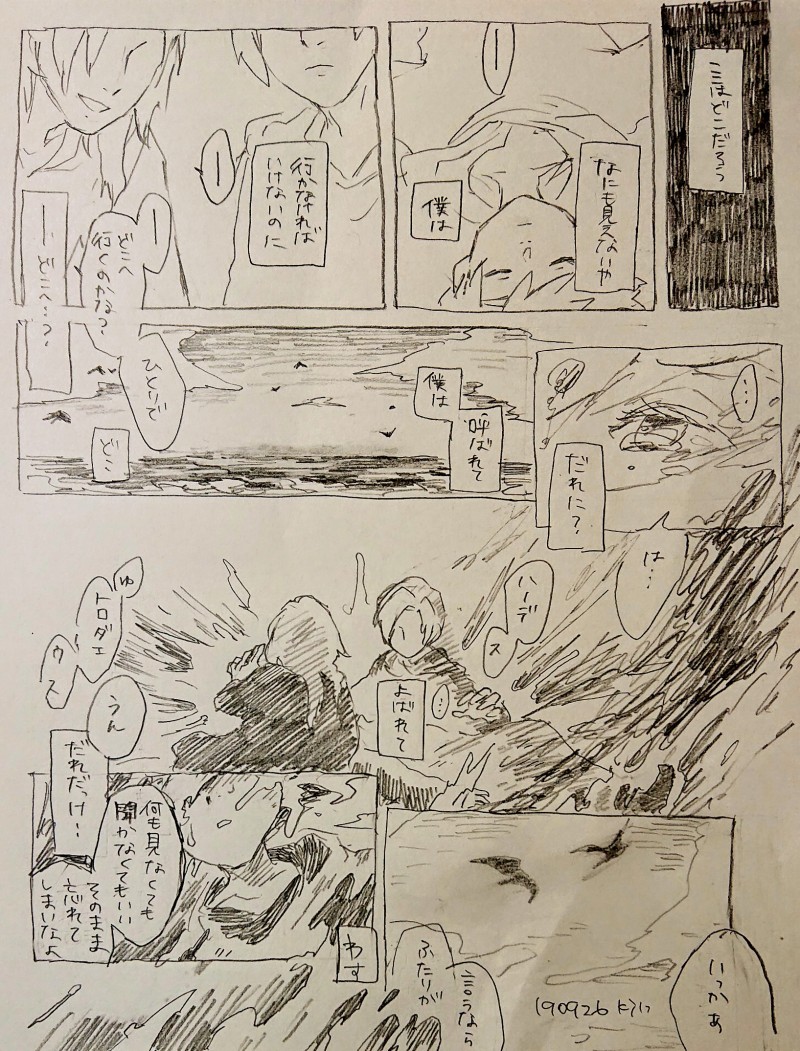 ここはどこだろう
なにも見えないや
ー
僕は
行かなければ
いけないのに
ー
ー
どこへ
行くのかな？
ー どこへ…？
…
だれに？
僕は
呼ばれて
ひとりで
ど…
は…
ハーデ
ス
…
よばれて
ゅ
トロダェ
ウス
うん
だれだっけ…
何も見なくても
聞かなくてもいい
そのまま
忘れて
しまいなよ
わす
いっかぁ
ふたりが
言うなら
190926